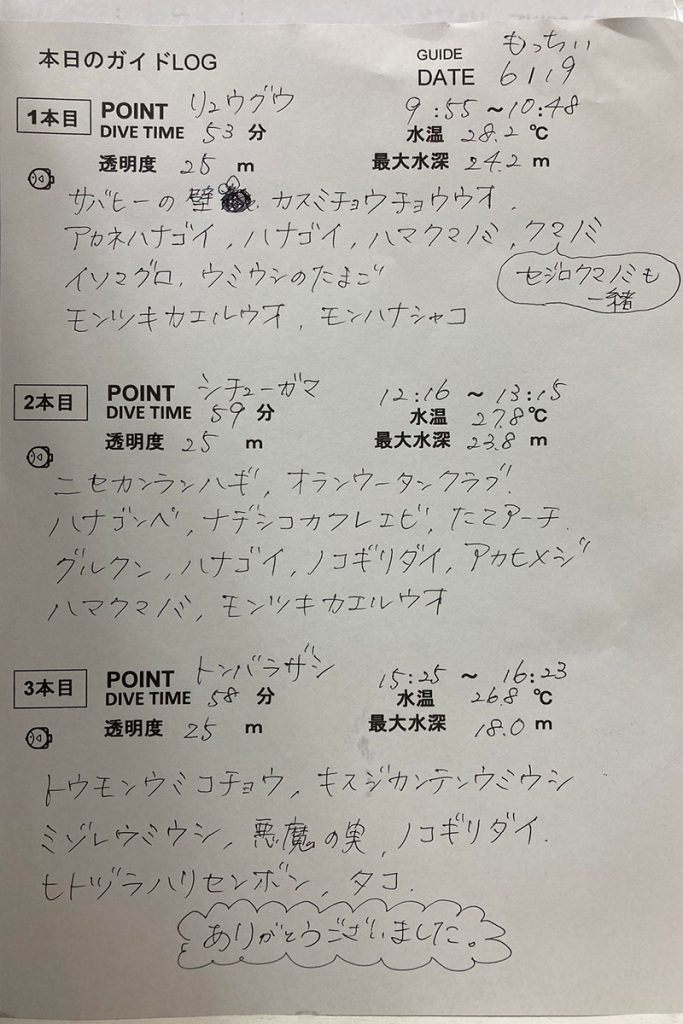 本日のガイドLOG
GUIDE もっちぃ
DATE 6/19
1本目
POINT リュウグウ
9:55 ~ 10:48
DIVE TIME 53 分
水温 28.2 ℃
透明度 25 m
最大水深 24.2 m
サバヒーの壁 カスミチョウチョウウオ.
アカネハナゴイ, ハナゴイ, ハマクマノミ, クマノミ
セジロクマノミも
一緒
イソマグロ, ウミウシのたまご
モンツキカエルウオ, モンハナシャコ
2本目
POINT シチューガマ
12:16 ~ 13:15
DIVE TIME 59 分
水温 27.8 ℃
透明度 25 m
最大水深 23.8 m
ニセカンランハギ, オランウータンクラブ.
ハナゴンベ, ナデシコカクレエビ, たてアーチ.
グルクン, ハナゴイ, ノコギリダイ, アカヒメジ
ハマクマノミ, モンツキカエルウオ
3本目
POINT トンバラザシ
15:25 ~ 16:23
DIVE TIME 58 分
水温 26.8 ℃
透明度 25 m
最大水深 18.0 m
トウモンウミコチョウ, キスジカンテンウミウシ
ミゾレウミウシ, 悪魔の実, ノコギリダイ.
ヒトヅラハリセンボン, タコ.
ありがとうございました。